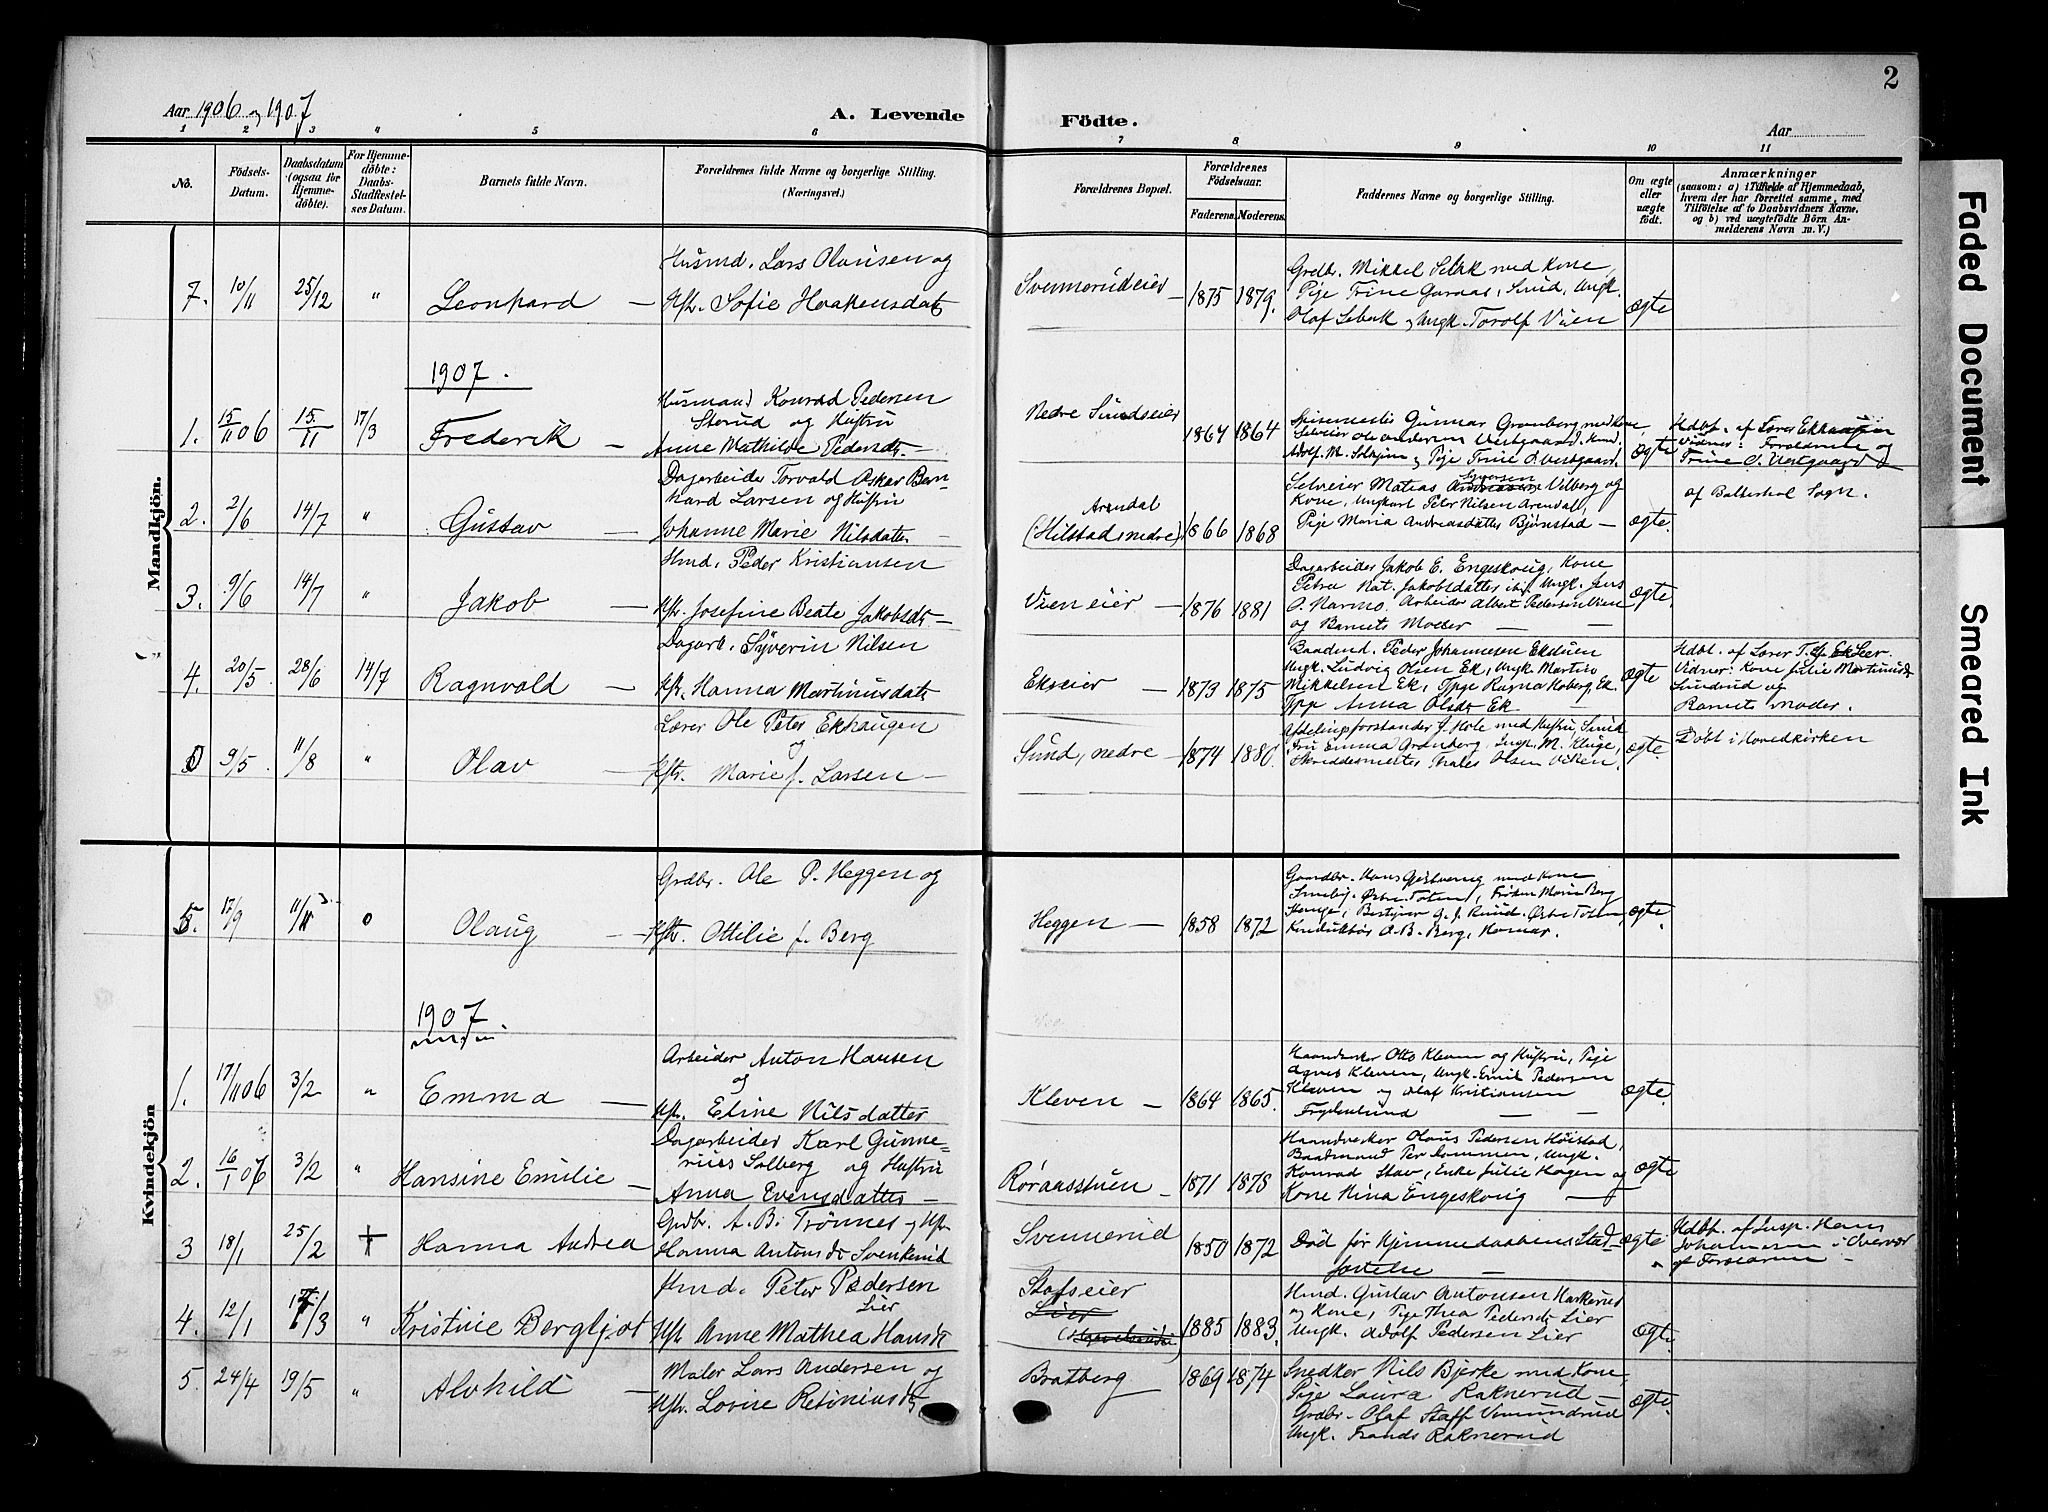 2
Aar 1906 og 1907
A. Levende Födte.
Aar
1 2 3 4 5 6 7 8 9 10 11
No.
Födsels-Datum.
Daabsdatum (ogsaa for Hjemmedøbte).
For Hjemmedøbte: Daabs-Stadfæstelses Datum.
Barnets fulde Navn.
Forældrenes fulde Navne og borgerlige Stilling. (Næringsvei.)
Forældrenes Bopæl.
Forældrenes Födselsaar.
Faderens. Moderens.
Faddernes Navne og borgerlige Stilling.
Om ægte eller uægte födt.
Anmærkninger
(saasom: a) i Tilfælde af Hjemmedaab, hvem der har forrettet samme, med Tilföielse af to Daabsvidners Navne, og b) ved uægtefödte Börn Anmelderens Navn m. V.)
Mandkjön.
7. 10/11 25/12 " Leonhard —
Husmd. Lars Olausen og
Hstr. Sofie Haakensdatr
Svennerudeier — 1875 1879.
Grdbr. Mikkel Sebak med Kone,
Pige Trine Garaas, Smid, Ungk.
Olaf Sebak og Ungk. Torolf Vien
ægte
1907.
1. 15/11 06 15/11 17/3 Frederik —
Husmand Konrad Pedersen
Storud og Hustru
Anne Mathilde Pedersdtr. —
Nedre Sundseier
1864 1864
Gunnar Grønberg, med Kone
ægte
Hdbt. af Lærer Ekhaugen
Vidner: Forældrene og
Trine O. Vestgaard
af Balkeskol Sogn.
2. 2/6 14/7 " Gustav —
Dagarbeider Torvald Oskar Bern-
hard Larsen og Hustru
Johanne Marie Nilsdatter —
Arendal
(Hilstad, nedre) 1866 1868
Selveier Matias Syversen Vilberg og
Kone, Ungkarl Peter Nilsen Arendal,
Pige Maria Andreasdatter Bjørnstad —
ægte.
3. 9/6 14/7 " Jakob —
Hmd. Peder Kristiansen
Hstr. Josefine Beate Jakobsdtr —
Vieneier — 1876 1881
Dagarbeider Jakob E. Engeskoug, Kone
Petra Nat. Jakobsdatter ibid, Ungk. Jens
O. Narmo, Arbeider Albert Pedersen Vien
og Barnets Moder — —
ægte.
4. 20/5 28/6 14/7 Ragnvald —
Dagarb. Syverin Nilsen
Hstr. Hanna Martinusdatr
Ekseier — 1873 1875
Baadmd. Peder Johannesen Ekstuen
Ungk. Ludvig Olsen Ek, Ungk. Martin
Mikkelsen Ek, Tpge Ragna Koberg, Ek.
Tpge Anna Olsdtr Ek
ægte
Hdbt. af Lærer T. Ekseier.
Vidner: Kone Julie Martinusdtr
Sundrud og
Barnets Moder.
5 9/5. 11/8 " Olav —
Lærer Ole Peter Ekhaugen
og
Hstr. Marie f. Larsen —
Sund, nedre — 1874 1880.
Afdelingsforstander J. Hole med Hustru, Smid
Fru Emma Grønberg, Insp. M. Kluge,
Skreddermester Thales Olsen Viken.
ægte.
Døbt i Hovedkirken
Kvindekjön
8. 17/9 11/11 0 Olaug —
Grdbr. Ole P. Heggen og
Hstr. Ottilie f. Berg
Heggen — 1858 1872
Gaardbr. Hans med Kone
Østre Toten, Frøken Marie Berg
Stange, Bestyrer G. J. Ruud. Østre Toten,
Konduktør O. B. Berg, Hamar.
ægte.
1907
1. 17/11 06 3/2 " Emma —
Arbeider Anton Hansen
og
Hstr. Eline Nilsdatter
Kleven — 1864 1865.
Haandverker Otto Kleven og Hustru, Pige
Agnes Kleven, Ungk. Emil Pedersen
Kleven og Olaf Kristiansen
Frydenlund — —
ægte.
2. 16/1 07 3/2 " Hansine Emilie —
Dagarbeider Karl Gunne-
rius Solberg og Hustru
Anna Evensdatter —
Røraasstuen — 1871 1878
Haandverker Olaus Pedersen Høistad,
Baadmand Per Lommen, Ungk.
Konrad Stav, Enke Julie Hagen og
Kone Nina Engeskoug —
ægte
3 18/1 25/2 † Hanna Andrea
Grdbr. A. B. Trønnes og Hstr
Hanna Antonsdtr Svenkerud
Svennerud
1850 1872
Død før Hjemmedaabens Stad-
fæstelse —
ægte.
Hdbt. af Insp. Hans
Johannesen i Overvær
af Forældrene —
4. 12/1 17/3 " Kristine Bergljot
Hmd. Peter Pedersen
Lier
Hstr Anne Mathea Hansdt
Stafseier
Lier
1885 1883.
Hmd. Gustav Antonsen Harkerud
og Kone, Pige Thea Pedersdtr Lier
Ungk. Adolf Pedersen Lier
ægte
5. 24/4 19/5 " Alvhild —
Maler Lars Andersen og
Hstr. Lovise Retiniusdtr
Bratberg
1869 1874
Snedker Nils Bjerke med Kone,
Pige Laura Raknerud —
Grdbr. Olaf Staff Vimundrud
Ungk. Frands Raknerud
ægte.
Faded Document
Smeared Ink